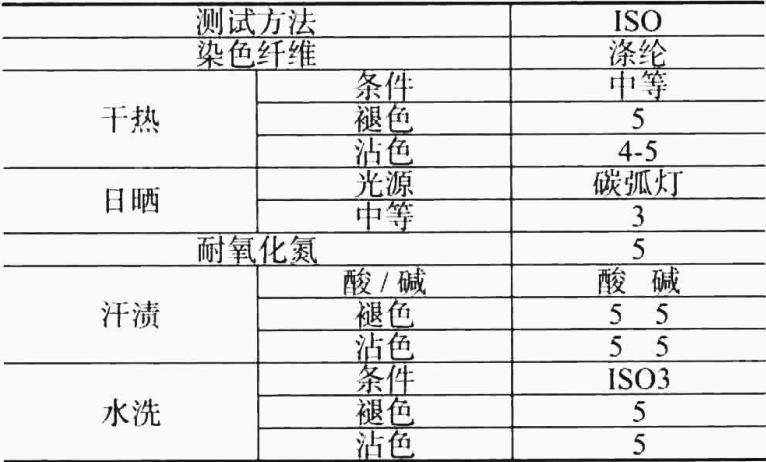 测试方法 ISO
染色纤维 涤纶
干热 条件 中等
褪色 5
沾色 4-5
日晒 光源 碳弧灯
中等 3
耐氧化氮 5
汗渍 酸/碱 酸 碱
褪色 5 5
沾色 5 5
水洗 条件 ISO3
褪色 5
沾色 5